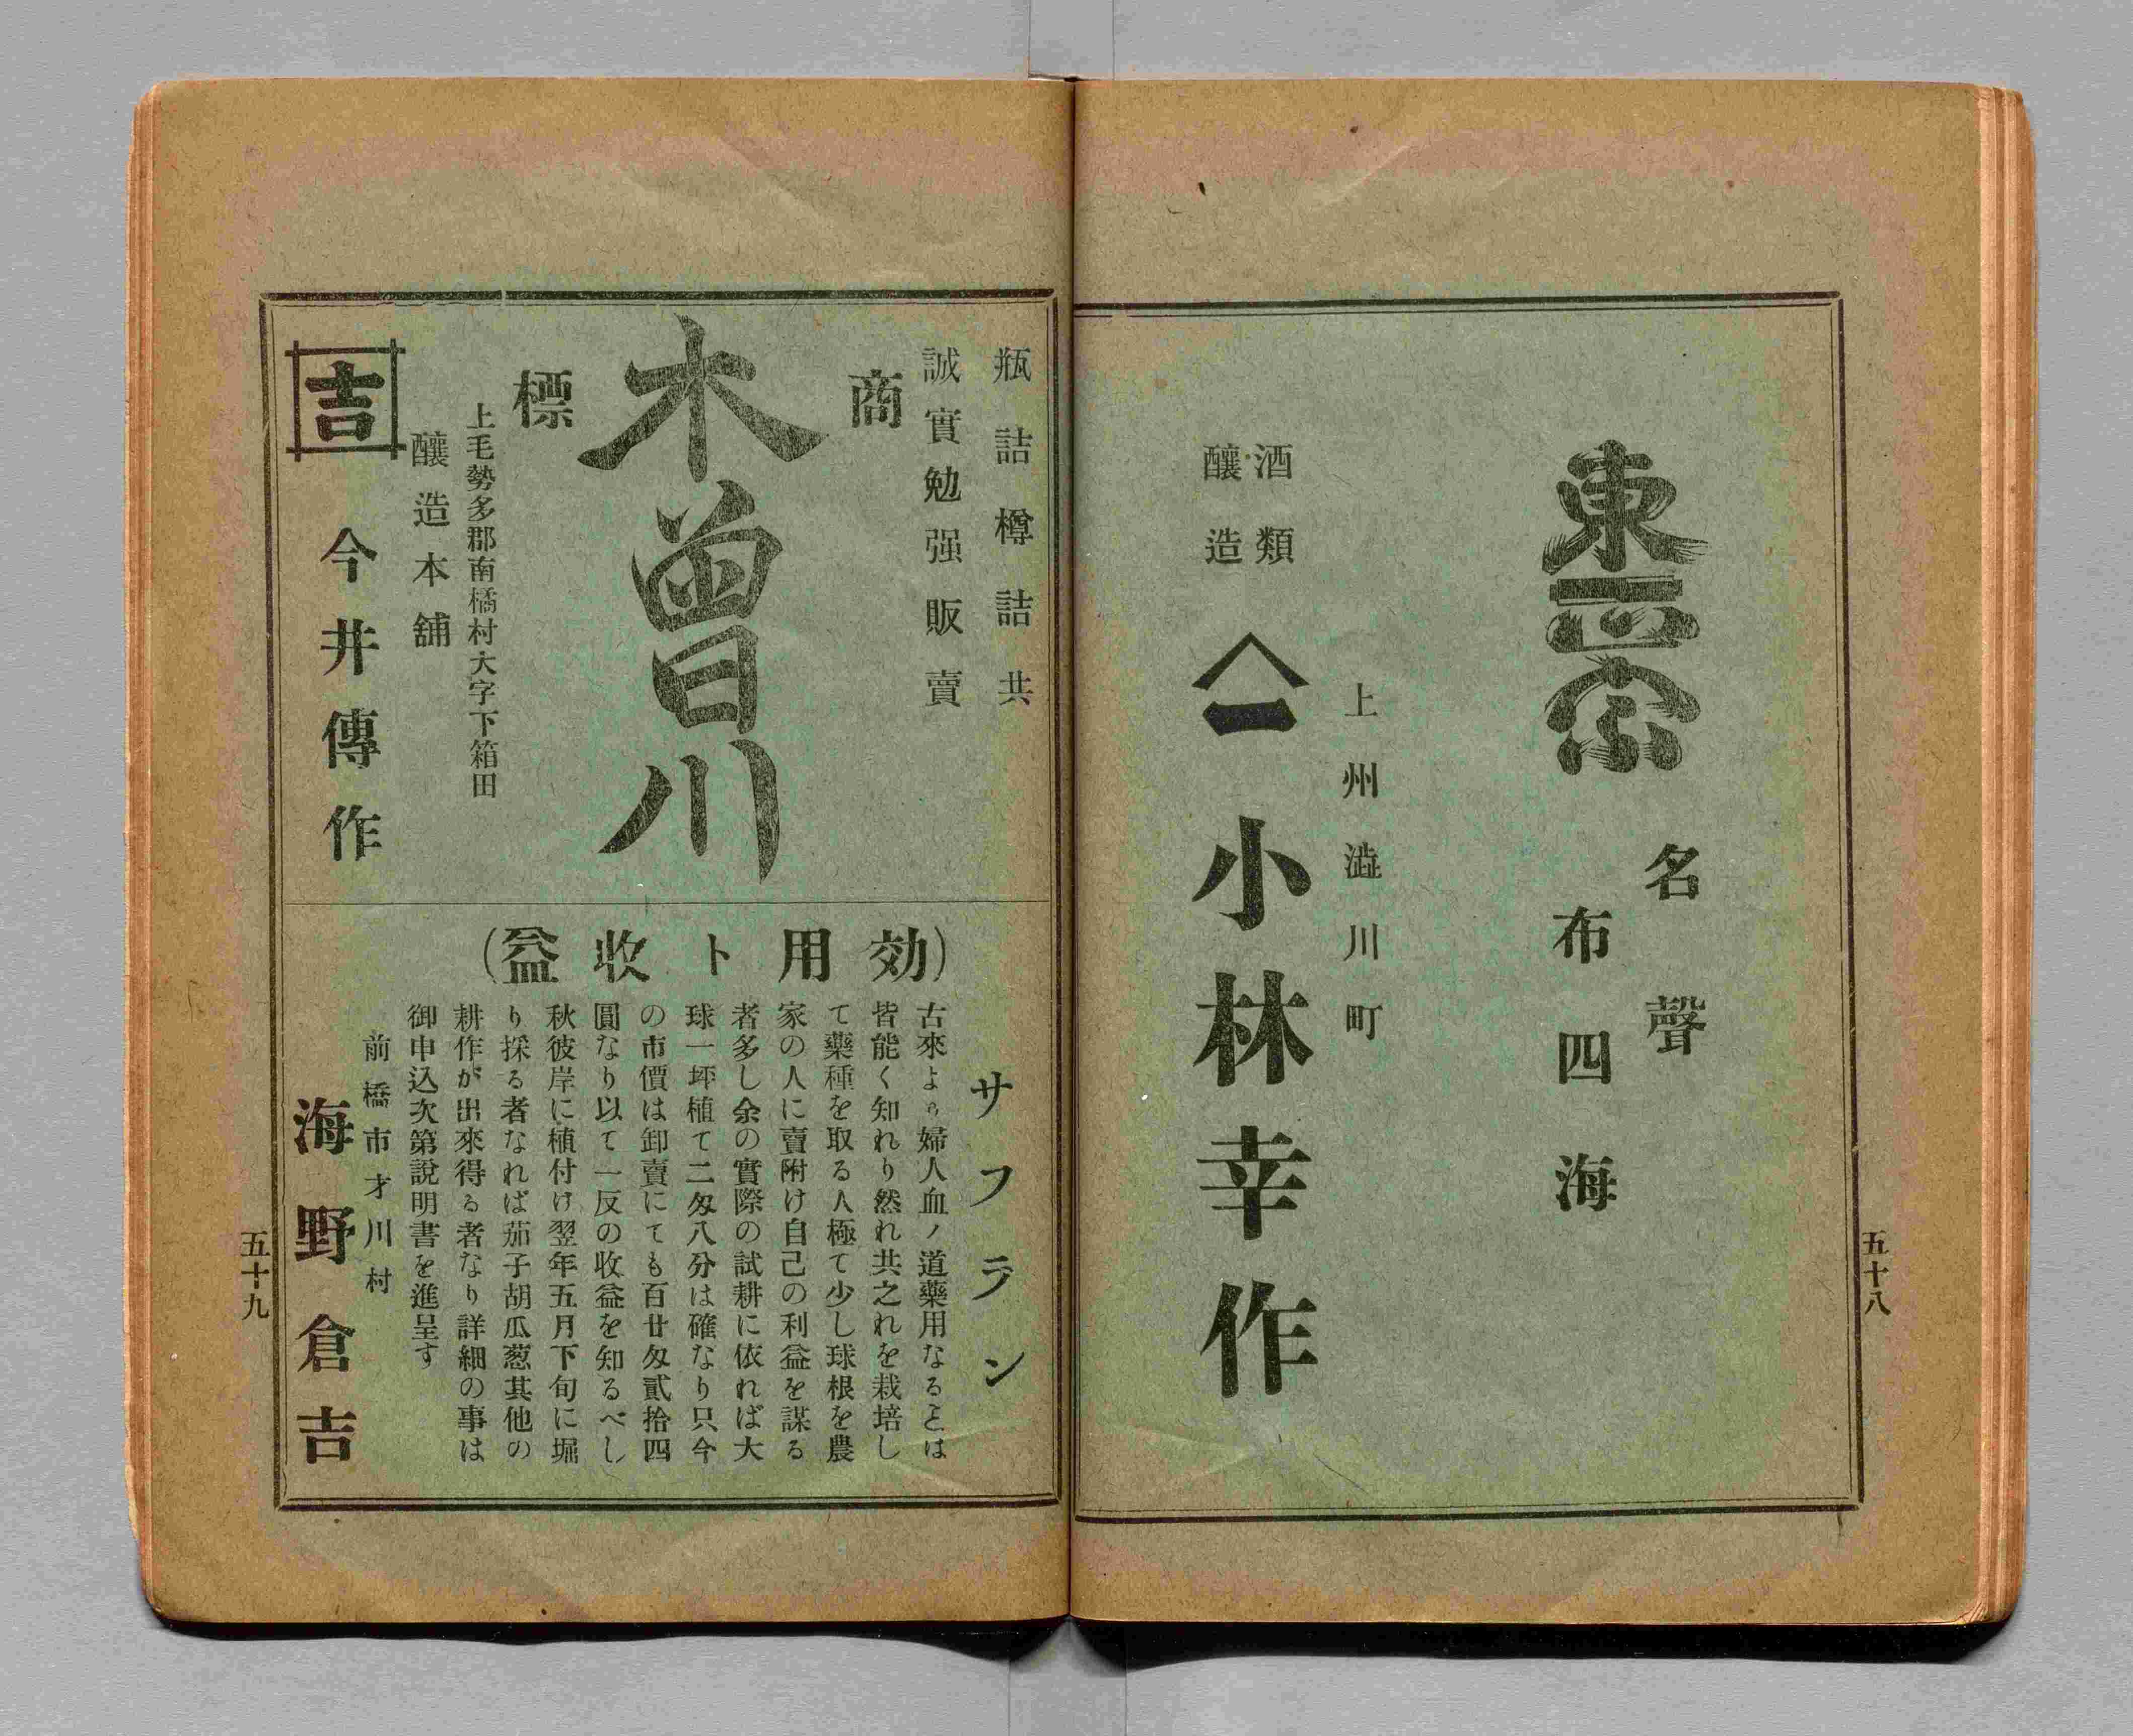 東正宗
名聲
布四海
上州澁川町
酒類
釀造
小林幸作
五十八
瓶詰樽詰共
誠實勉强販賣
商
木曾川
標
上毛勢多郡南橘村大字下箱田
釀造本舖
吉
今井傳作
(効用ト收益)
サフラン
古來より婦人血ノ道藥用なるとは
皆能く知れり然れ共之れを栽培し
て藥種を取る人極て少し球根を農
家の人に賣附け自己の利益を謀る
者多し余の實際の試耕に依れば大
球一坪植て二匁八分は確なり只今
の市價は卸賣にても百廿匁貳拾四
圓なり以て一反の收益を知るべし
秋彼岸に植付け翌年五月下旬に堀
り採る者なれば茄子胡瓜葱其他の
耕作が出來得る者なり詳細の事は
御申込次第說明書を進呈す
前橋市才川村
海野倉吉
五十九